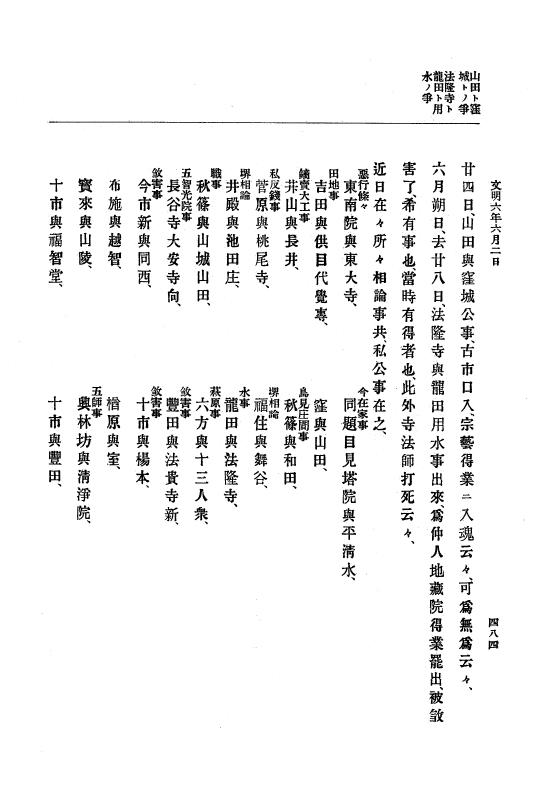 文明六年六月二日
四八四
山田ト窪
城トノ爭
法隆寺ト
龍田ト用
水ノ爭
廿四日、山田與窪城公事、古市口入、宗藝得業ニ入魂云々、可爲無爲云々、
六月朔日、去廿八日、法隆寺與龍田用水事出來、爲仲人地藏院得業罷出、被敓
害了希有事也、當時有得者也、此外寺法師打死云々、
近日在々所々相論事共、私公事在之、
惡行條々
東南院與東大寺、
今在家事
同題目見塔院與平淸水、
田地事
吉田與供目代覺專、
窪與山田、
鑄賣大工事
井山與長井、
鳥見庄間事
秋篠與和田、
私反錢事
菅原與桃尾寺、
堺相論
福住與舞谷、
堺相論
井殿與池田庄、
水事
龍田與法隆寺、
職事
秋篠與山城山田、
萩原事
六方與十三人衆、
五智光院事
長谷寺大安寺向、
敓害事
豐田與法貴寺新、
敓害事
今市新與同西、
敓害事
十市與楊本、
布施與越智、
楢原與室、
寳來與山陵、
五師事
奧林坊與淸淨院、
十市與福智堂、
十市與豐田、